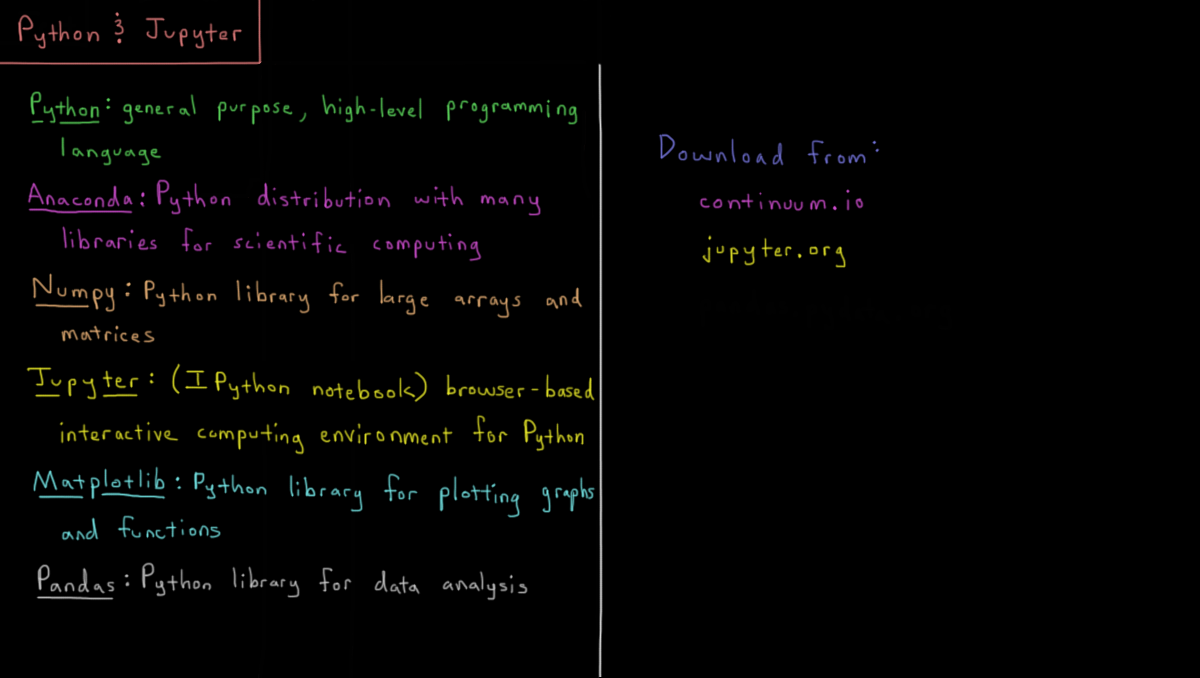 Python & Jupyter
Python: general purpose, high-level programming
language
Anaconda: Python distribution with many
libraries for scientific computing
Numpy: Python library for large arrays and
matrices
Jupyter: (IPython notebook) browser-based
interactive computing environment for Python
Matplotlib: Python library for plotting graphs
and functions
Pandas: Python library for data analysis
Download from:
continuum.io
jupyter.org